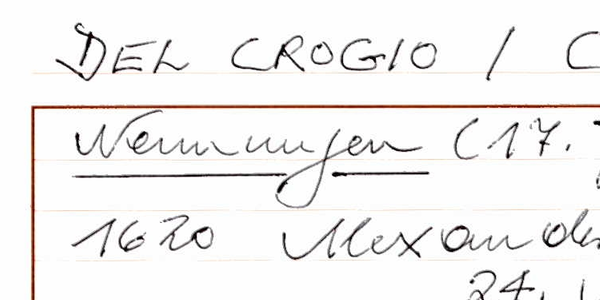 DEL CROGIO / C
Nennungen (17.
1620 Alexander
24.